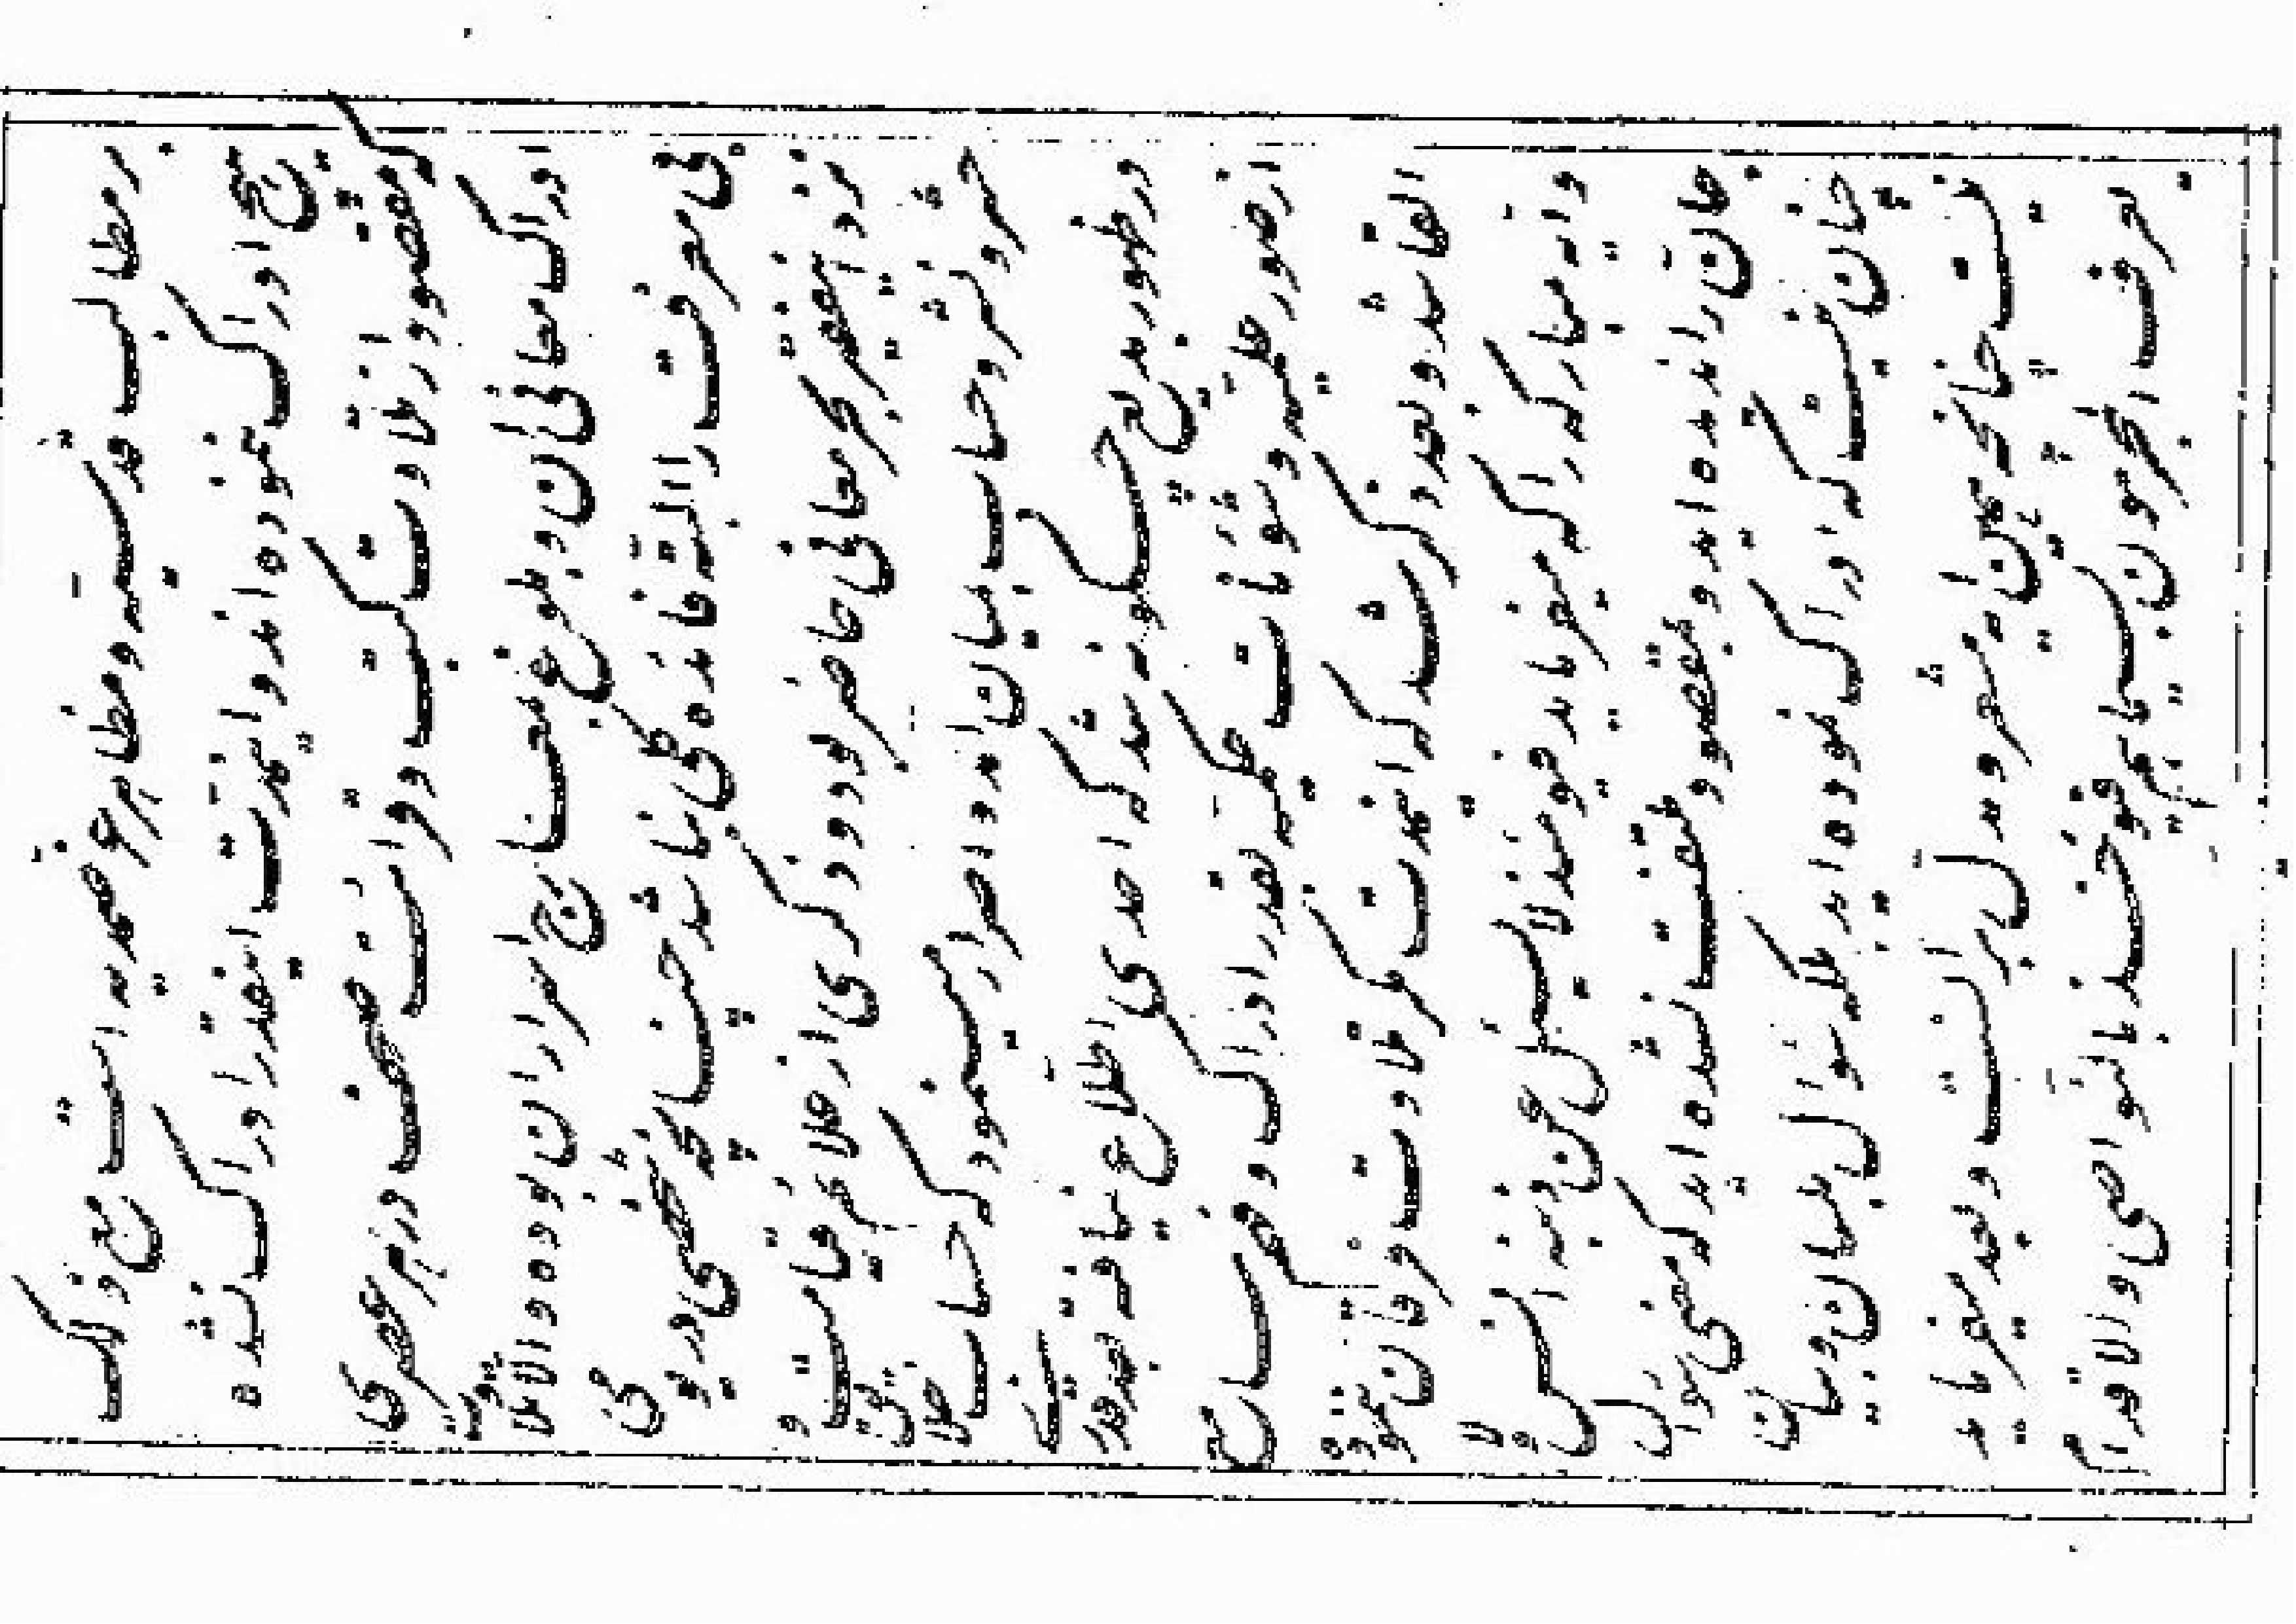 بر مطالب قدسیه و مظاهر غیبیه است ذلک
ادراک نموده اند و اینست اینقدر ادراک شده
که مقصود از تلاوت کتب و قرائت صحف در هر عصری
ادراک معانی آن و بلوغ بمعارج اسرار آن بوده و الا تلاوت
بی معرفت را البته فائده کلی نباشد چنانچه شخصی در یومی
نزد این فقیر بحر معانی حاضر بود و ذکری از علائم قیامت و
حشر و نشر و حساب بمیان آمد و اصرار مینمود که حساب خلائق
در ظهور بدیع چگونه شد که احدی اطلاع نیافته بعد قدری
از صور علمیه و شئونات حکمیه بقدر ادراک و فهم سامع
القا شد و بعد ذکر شد که این مدت مگر تلاوت فرقان ننموده
و آیه مبارکه را که میفرماید فیومئذ لا یسئل عن ذنبه انس و لا
جان را ندیده اید و بمقصود ملتفت نشده اید که معنی سؤال
چنان نیست که ادراک نموده اید بلکه سؤال بلسان و بیان
نیست چنانچه همین آیه مشعر و مدل بر آنست و بعد میفرماید
یعرف المجرمون بسیماهم فیؤخذ بالنواصی و الاقدام